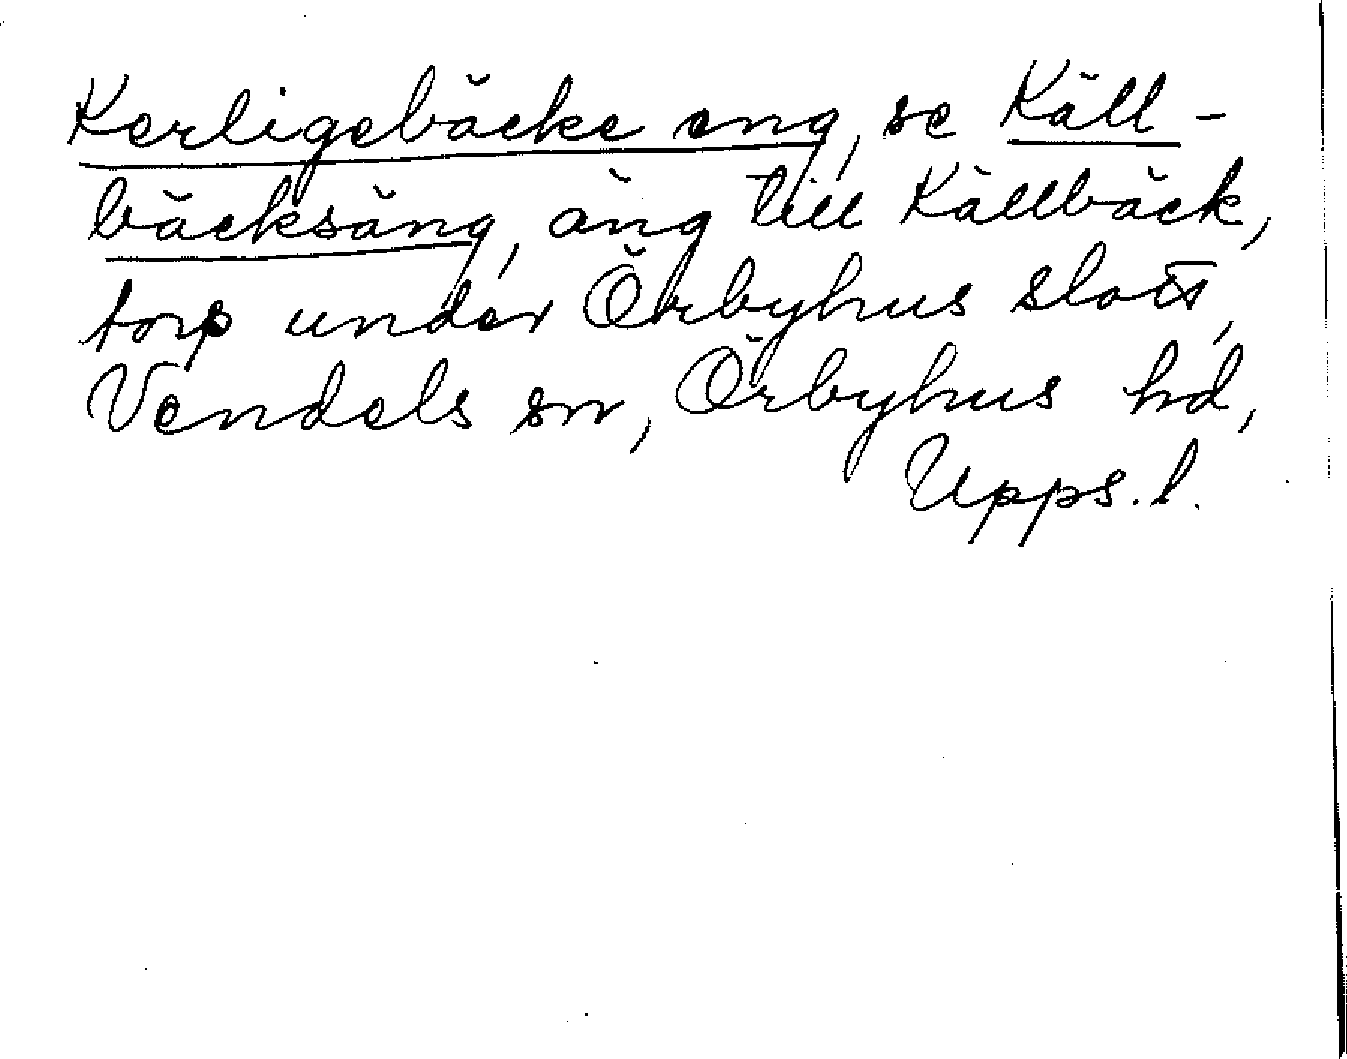 Kerligebäcke eng, se Käll-
bäcksäng, äng till Källbäck,
torp under Örbyhus slott,
Vendels sn, Örbyhus hd,
Upps. l.